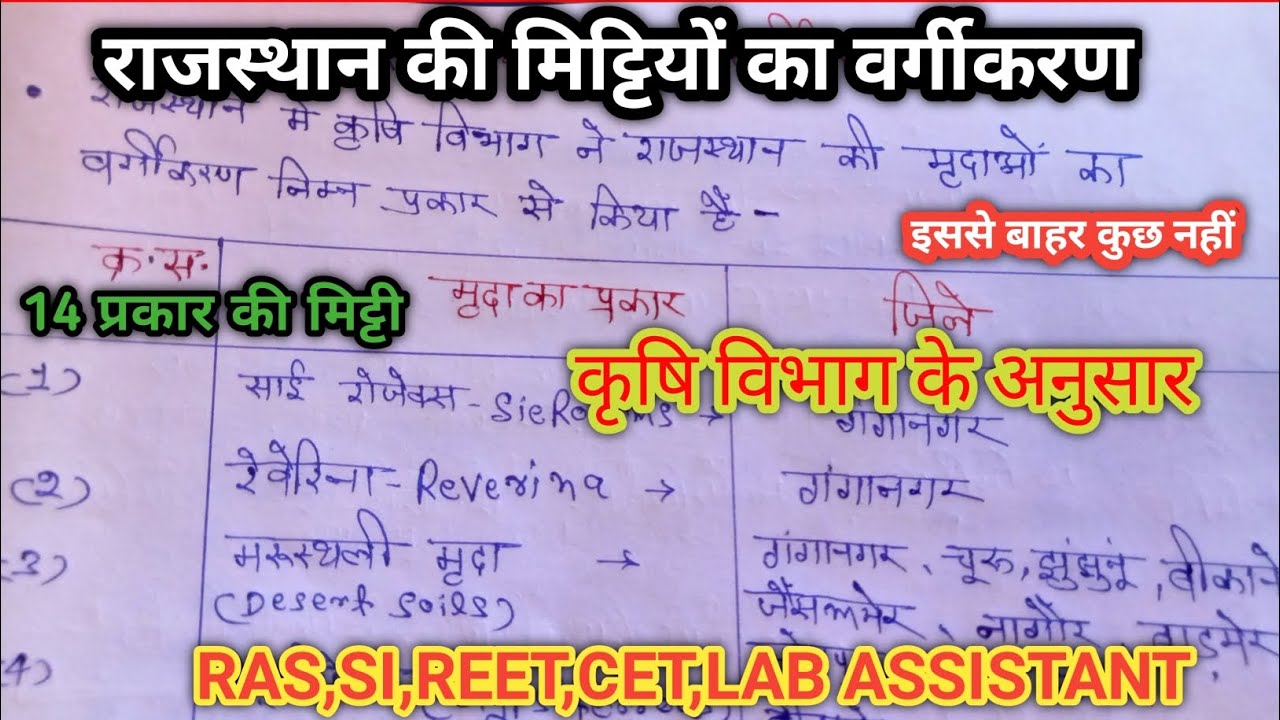 राजस्थान की मिट्टियों का वर्गीकरण
• राजस्थान में कृषि विभाग ने राजस्थान की मृदाओं का
वर्गीकरण निम्न प्रकार से किया है -
इससे बाहर कुछ नहीं
क्र.स. मृदा का प्रकार जिले
14 प्रकार की मिट्टी
कृषि विभाग के अनुसार
(1) साई रोजेक्स - गंगानगर
(2) रेवेरिना - Reverina → गंगानगर
(3) मरूस्थली मृदा → गंगानगर, चूरू, झुंझुनू, बीकाने
(Desert Soils) जैसलमेर, नागौर, बाड़मेर
(4)
RAS,SI,REET,CET,LAB ASSISTANT